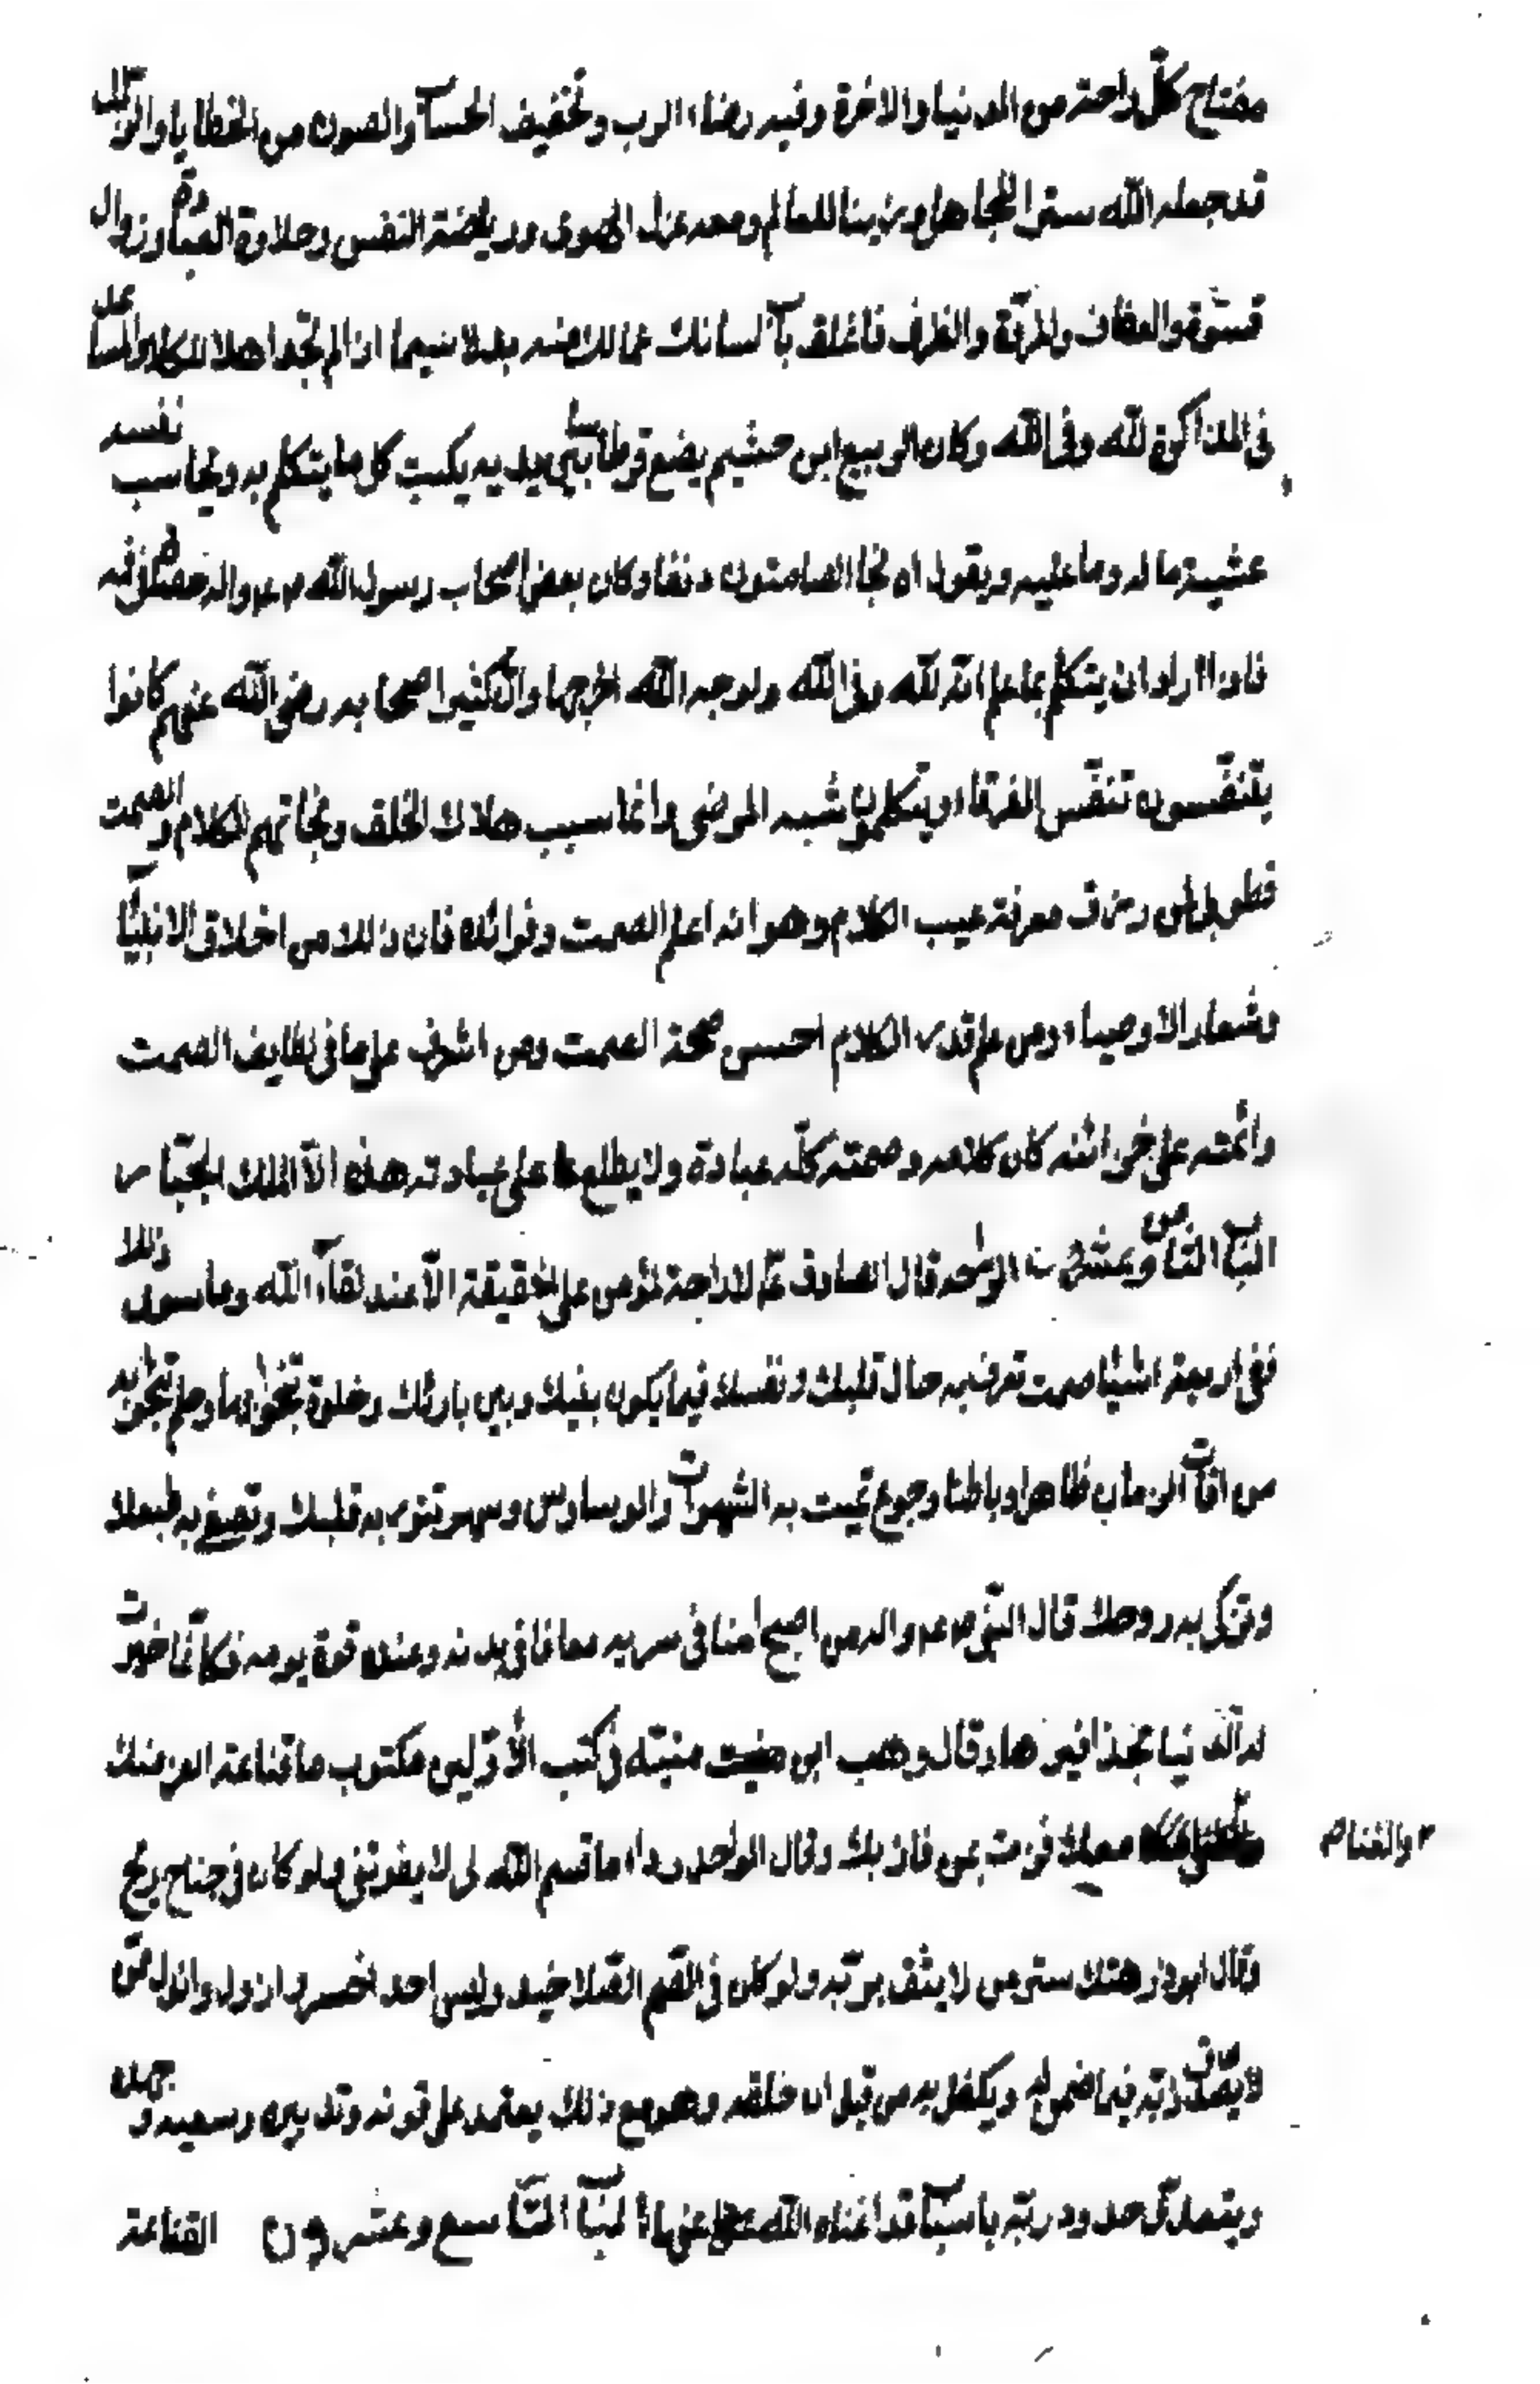 مفتاح كلّ راحة من الدنيا والاخرة وفيه رضاء الرب وتخفيف الحساب والصون من الخطايا والزلل
قد جعله الله سترا للجاهل وزينا للعالم ومعه عزل الهوى ورياضة النفس وحلاوة العبادة وزوال
قسوة والعفاف والمروّة والظرف فاغلق باب لسانك عما لك منه بد لا سيما اذا لم تجد اهلا للكلام والمساعد
فى المذاكرة لله وفى الله وكان الربيع ابن خثيم يضع قرطاسا بين يديه يكتب كل ما يتكلم به ويحاسب نفسه
عشية ما له وما عليه ويقول اه نجا الصامتون وكان بعض اصحاب رسول الله ص ع م واله حصاة فى فمه
فاذا اراد ان يتكلم بما علم انه لله وفى الله ولوجه الله اخرجها وان كثيرا اصحابه رضى الله عنهم كانوا
يتنفّسون تنفّس الغرقاء ويتكلمون شبه المرضى وانما سبب هلاك الخلق ونجاتهم الكلام والصمت
فطوبى لمن رزق معرفة عيب الكلام وهوانه اعلم الصمت وفوائده فان ذلك من اخلاق الانبياء
وشعار الاوصياء ومن علم قدر الكلام احسن صحبة الصمت ومن اشرف على ما فى لطايف الصمت
وائمنه على خزائنه كان كلامه وصمته كلّه عبادة ولا يطلع على عبادته هذه الّا الملك الجبّار
الباب الثامن وعشرون الواحد قال الصادق ع م لا راحة لمؤمن على الحقيقة الّا عند لقاء الله وما سوى ذلك
ففى اربعة اشياء صمت تعرف به حال قلبك ونفسك فيما يكون بينك وبين بارئك وخلوة تنجو بها وحلم تنجو به
من افات الزمان ظاهرا وباطنا وجوع تميت به الشهوات والوساوس وسهر تنور به قلبك وتصفى به طبعك
وتزكى به روحك قال النبى ص ع م واله من اصبح امنا فى سربه معافا فى بدنه وعنده قوة يومه فكانما خيرت
له الدنيا بحذافيرها وقال وهب ابن منبّه فى كتب الاوّلين مكتوب ما قناعة العز منك
والغنام معك فزت من فاز بك وقال ابو الدرداء ما قسم الله لى لا يفوتنى ولو كان فى جناح ريح
وقال ابوذر هتك ستر من لا يثق بربّه ولو كان فى الصم الصلاخيد وليس احد اخسر وارذل وانذل ممّن
لا يصدّق ربّه فيما ضمن له ويكفل به من قبل ان خلقه وهو مع ذلك يعتمد على قوته وتدبيره وسعيه وجهده
ويتعدى حدود ربّه باسباب قد اغناه الله عنها الباب التاسع وعشرون القناعة